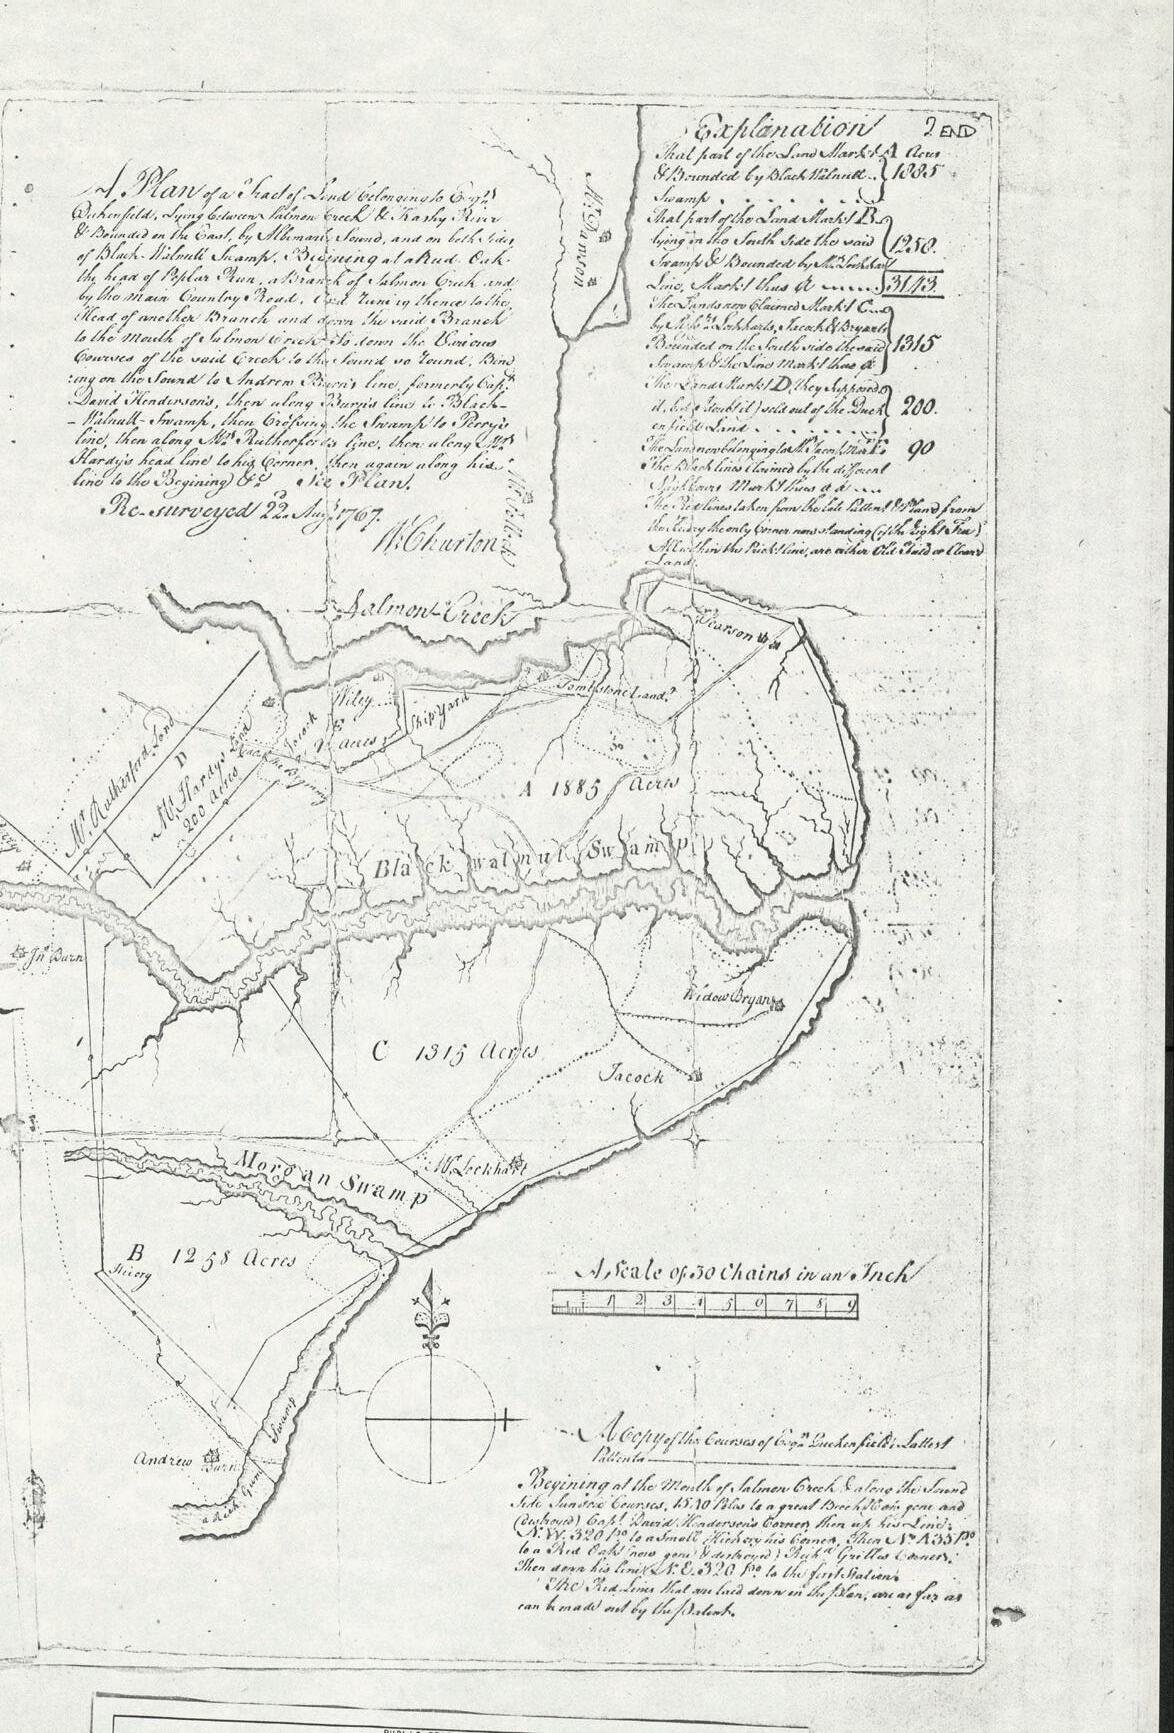 A Plan of a Tract of Land belonging to Esqr.
Duckenfield, Lying between Salmon Creek & Kashy River
& Bounded on the East, by Albemarle Sound, and on both Sides
of Black-Wallnutt Swamp. Begining at a Red Oak
the head of Poplar Run, a Branch of Salmon Creek and
by the Main Country Road, and runing thence to the
Head of another Branch and down the said Branch
to the Mouth of Salmon Creek So down the Various
Courses of the said Creek to the Sound so round, Bind
:ing on the Sound to Andrew Burn's line, formerly Capt.
David Henderson's, then along Burn's line to Black-
-Walnutt-Swamp, then Crossing the Swamp to Perry's
line, then along Mr. Rutherford's line, then along Mr.
Hardy's head line to his Corner, then again along his
line to the Begining &c. See Plan.
Re-surveyed 22d. Augt. 1767.
W: Churton
Explanation
2 END
That part of the Land Markt A Acres
& Bounded by Black Wallnutt 1885
Swamp
That part of the Land Markt B
lying in the South Side the said 1258.
Swamp & Bounded by Mr. Lockhart
Line, Markt thus 3143.
The Lands now Claimed Markt C
by Lockharts, Jacock & Bryants
Bounded on the South side the said 1315
Swamp & the Line Markt thus
The Land Markt D, they Supposed
it, but (I doubt it) sold out of the Duck 200.
enfield Land
The Land now belonging to 90
The Black lines Claimed by the different
Markt thus
The Red lines taken from the late Pattent & Pland from
the only Corner now standing (of the Light Tree)
All within the Prickt line, are either Old Field or Clear'd
Land.
Mr. Dawson
Salmon Creek
Pearson
Tombstone Landg.
Wiley
Ship Yard
Jacock
E
90 acres
Mr. Rutherford Land
D
Mr. Hardys Land
200 acres
30
A 1885 Acres
Black walnut Swamp
Jno. Burn
Widow Bryan
C 1315 Acres
Jacock
Mr. Lockhart
Morgan Swamp
B 1258 Acres
Hickory
A Scale of 30 Chains in an Inch
1 2 3 4 5 6 7 8 9
Swamp
Andrew Burn
Gum
A Copy of the Courses of Esqr. Duckenfield's Lattest
Pattents
Begining at the Mouth of Salmon Creek & along the Sound
Side Sundrie Courses, 1510 Poles to a great Beech (Now gone and
(destroyed) Capt. David Henderson's Corner, then up his Line
N. W. 320 Po. to a Small Hickory his Corner, Then
to a Red Oak (now gone & destroyed) Grilles Corner.
Then down his line N. E. 320 Po. to the first Station.
The Red Lines that are laid down in the Plan, are as far as
can be made out by the Patent.